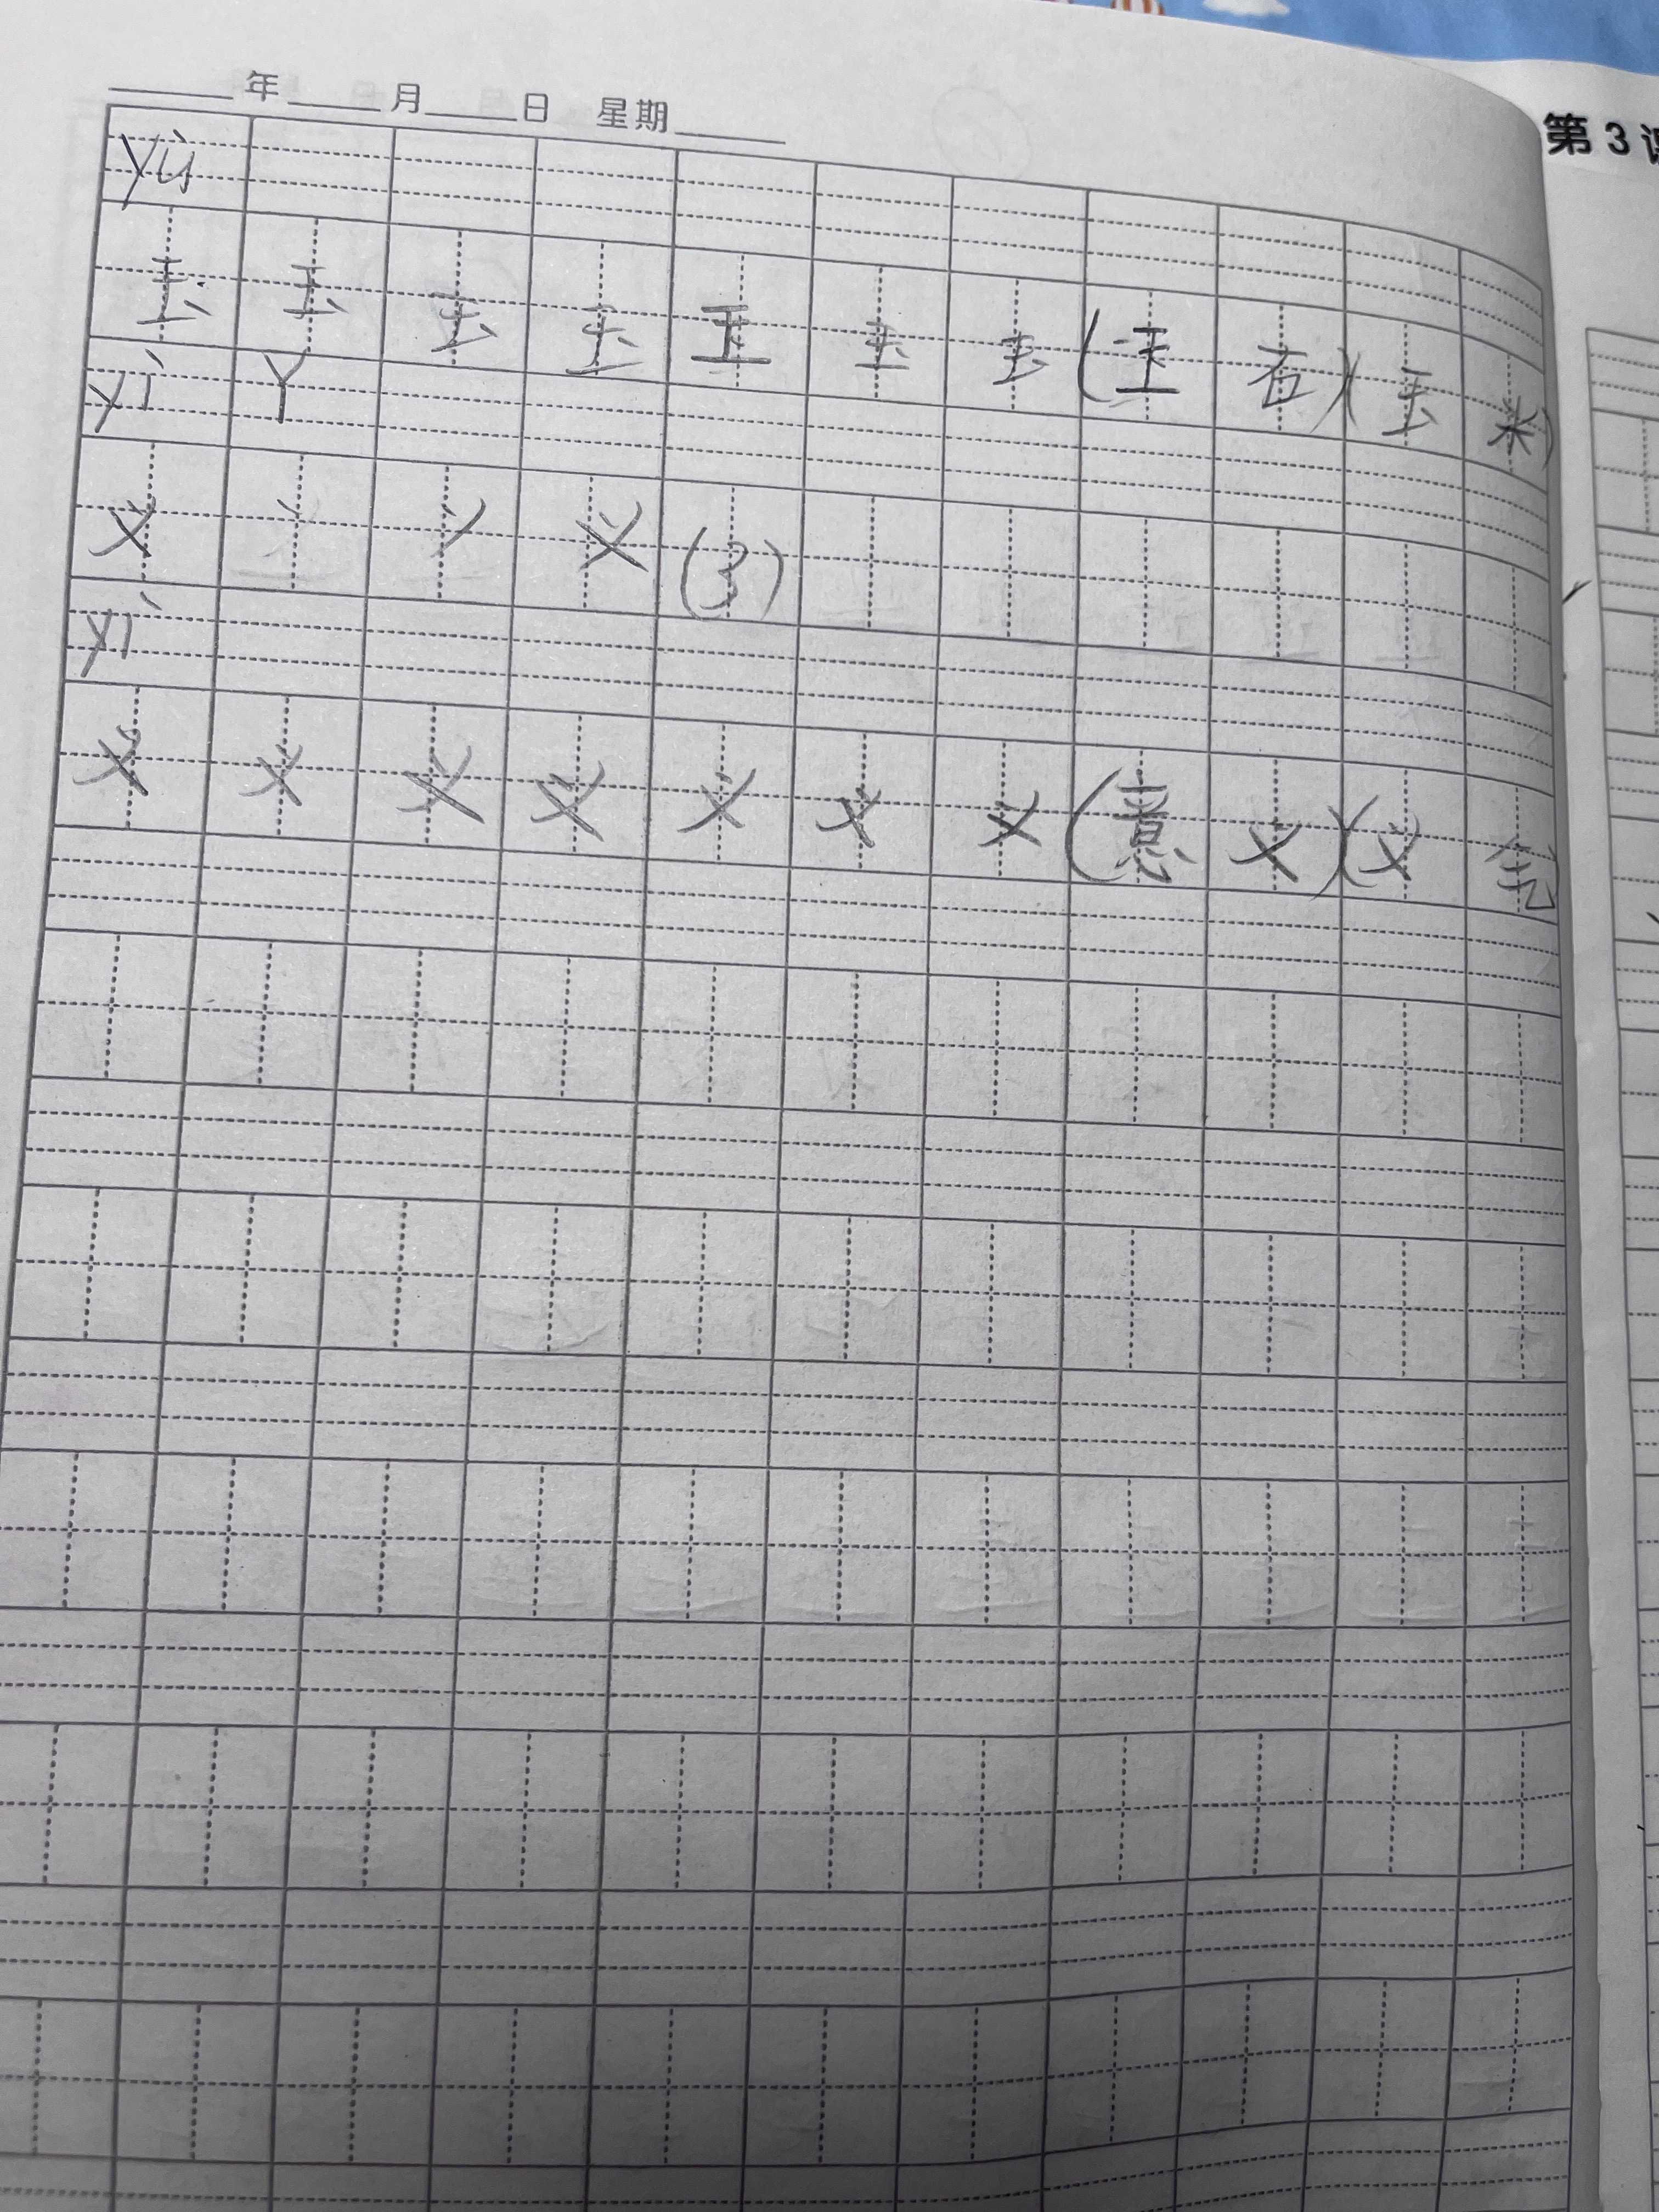 年 月 日 星期
第3课
yù
玉 玉 玉 玉 玉 玉 玉 (玉 石)(玉 米)
yì Y
义 丶 丷 义 (3)
yì
义 义 义 义 义 义 义 (意 义)(义 气